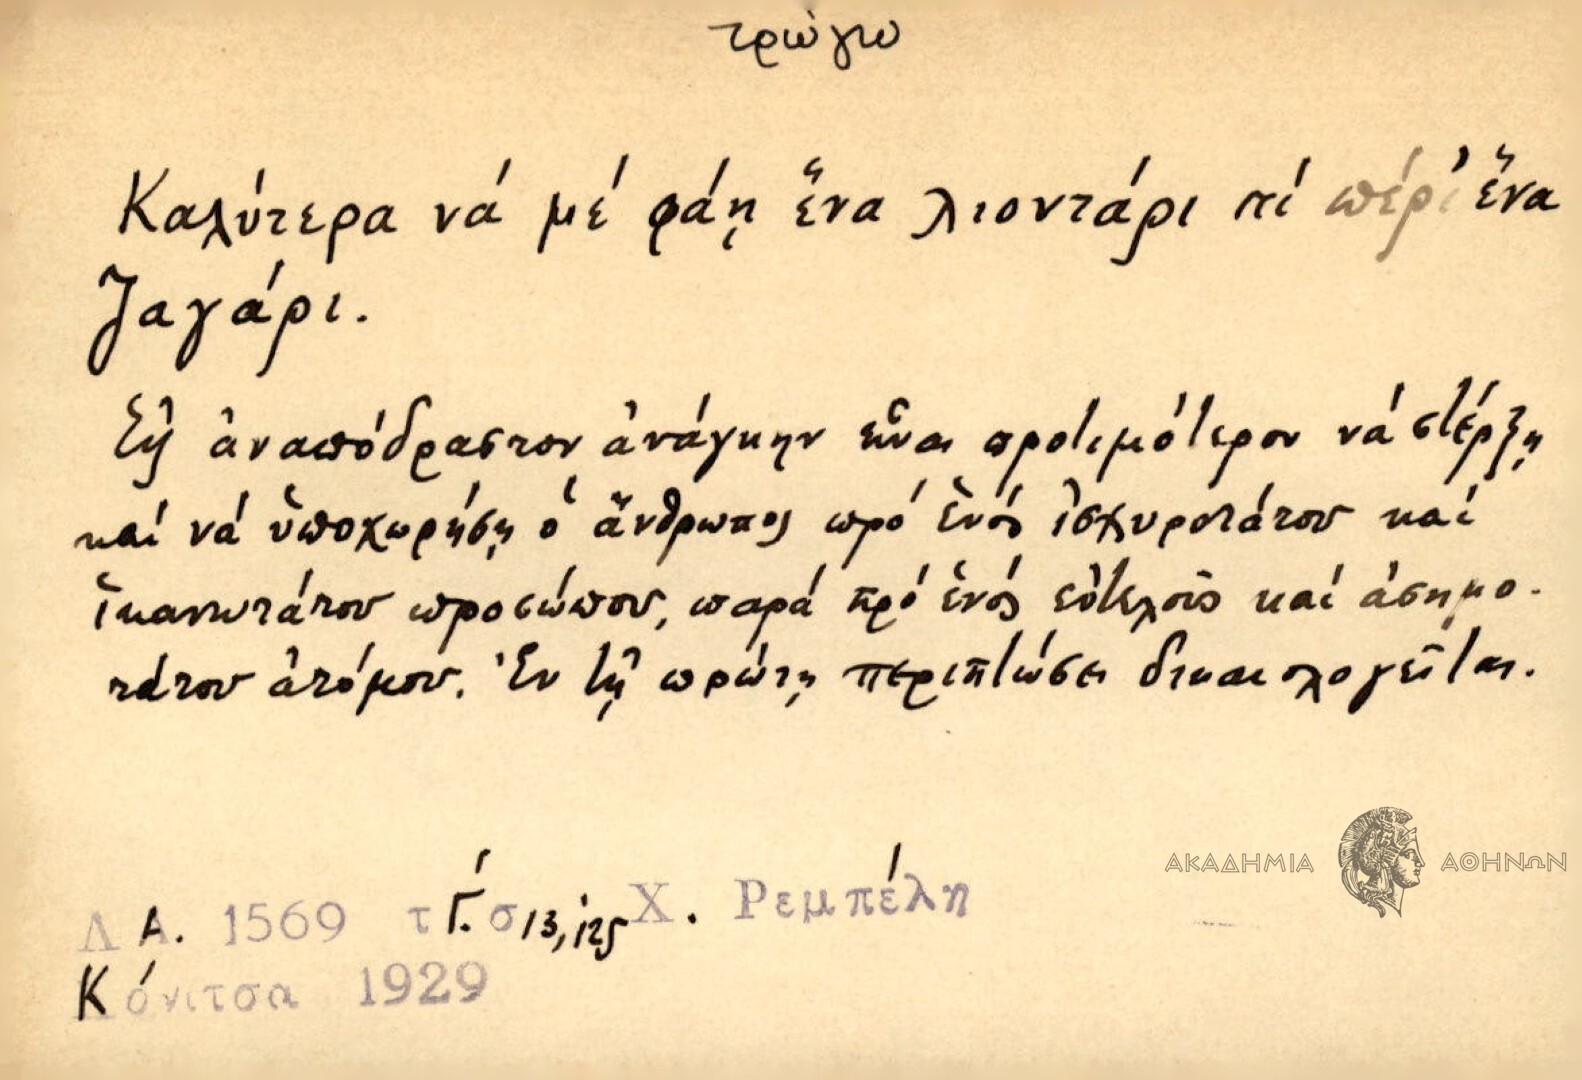 τρώγω
Καλύτερα νά μέ φάῃ ἕνα λιοντάρι πέρι ἕνα
ζαγάρι.
Εἰς ἀναπόδραστον ἀνάγκην εἶναι προτιμότερον νά στέρξῃ
καί νά ὑποχωρήσῃ ὁ ἄνθρωπος πρό ἑνός ἰσχυροτάτου καί
ἱκανωτάτου προσώπου, παρά πρό ἑνός εὐτελοῦς καί ἀσημο-
τάτου ἀτόμου. Ἐν τῇ πρώτῃ περιπτώσει δικαιολογεῖται.
ΑΚΑΔΗΜΙΑ ΑΘΗΝΩΝ
Λ Α. 1569 τ Γ. σ 13, Χ. Ρεμπέλη
Κόνιτσα 1929